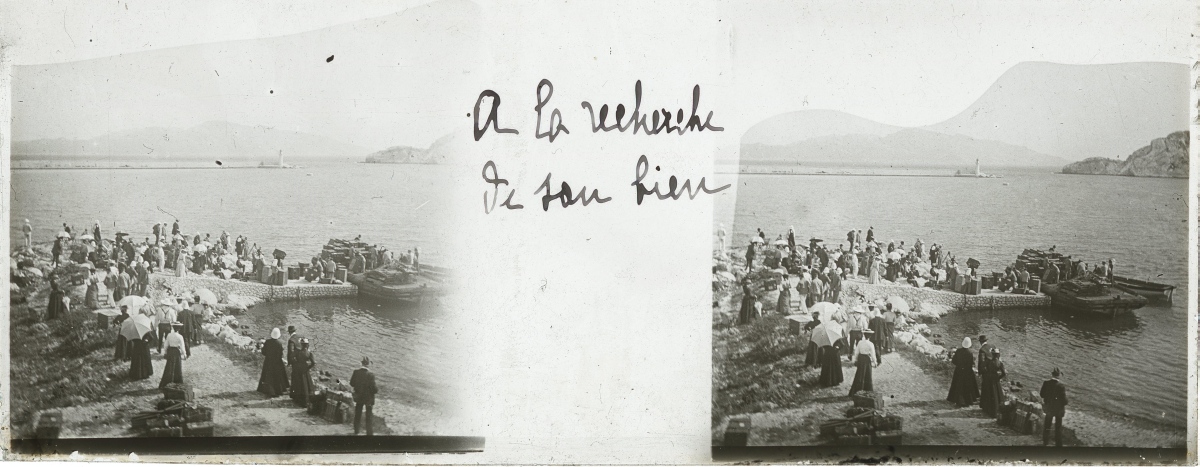 A la recherche
de son bien